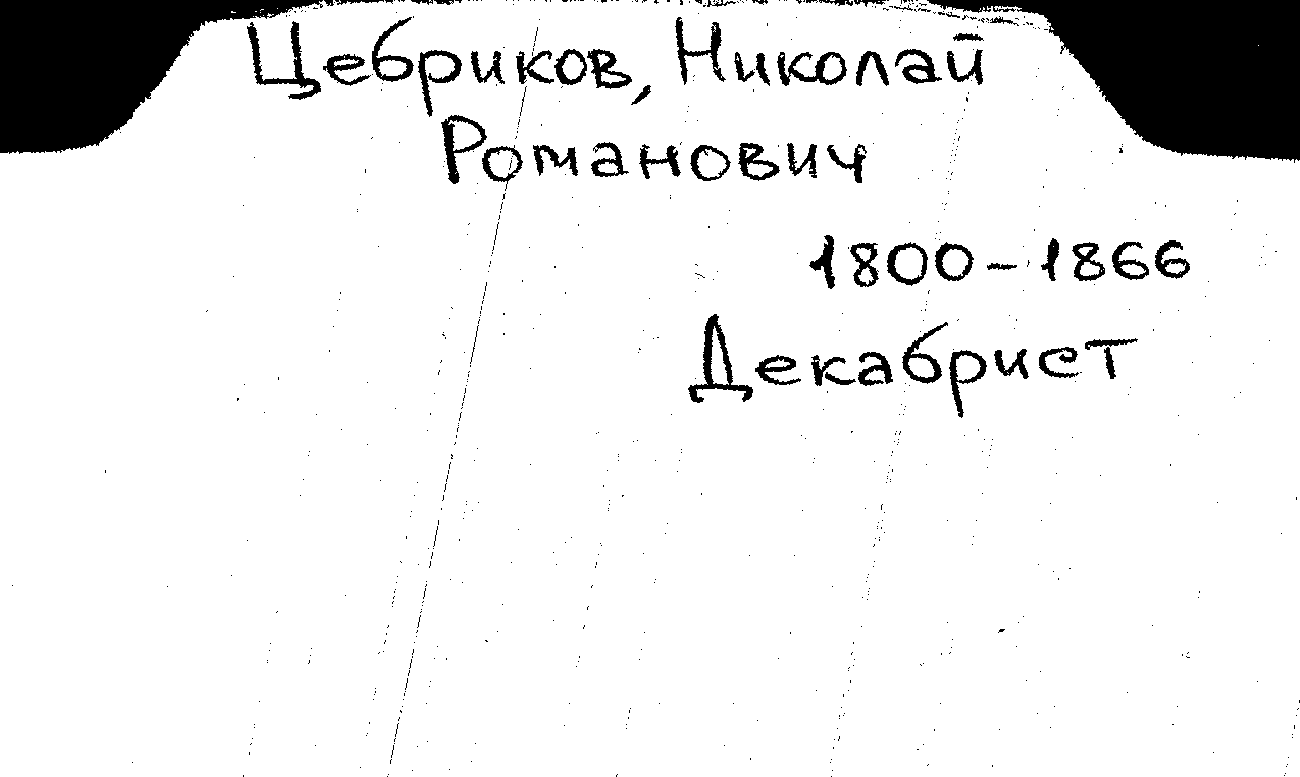 Цебриков, Николай
Романович
1800-1866
Декабрист